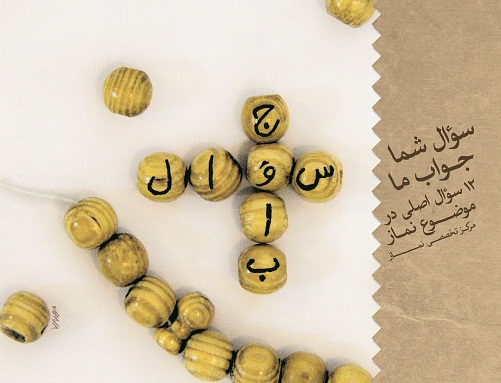 سؤال شما
جواب ما
۱۲ سؤال اصلی در
موضوع نماز
مرکز تخصصی نماز
ج
س ؤ ا ل
ا
ب